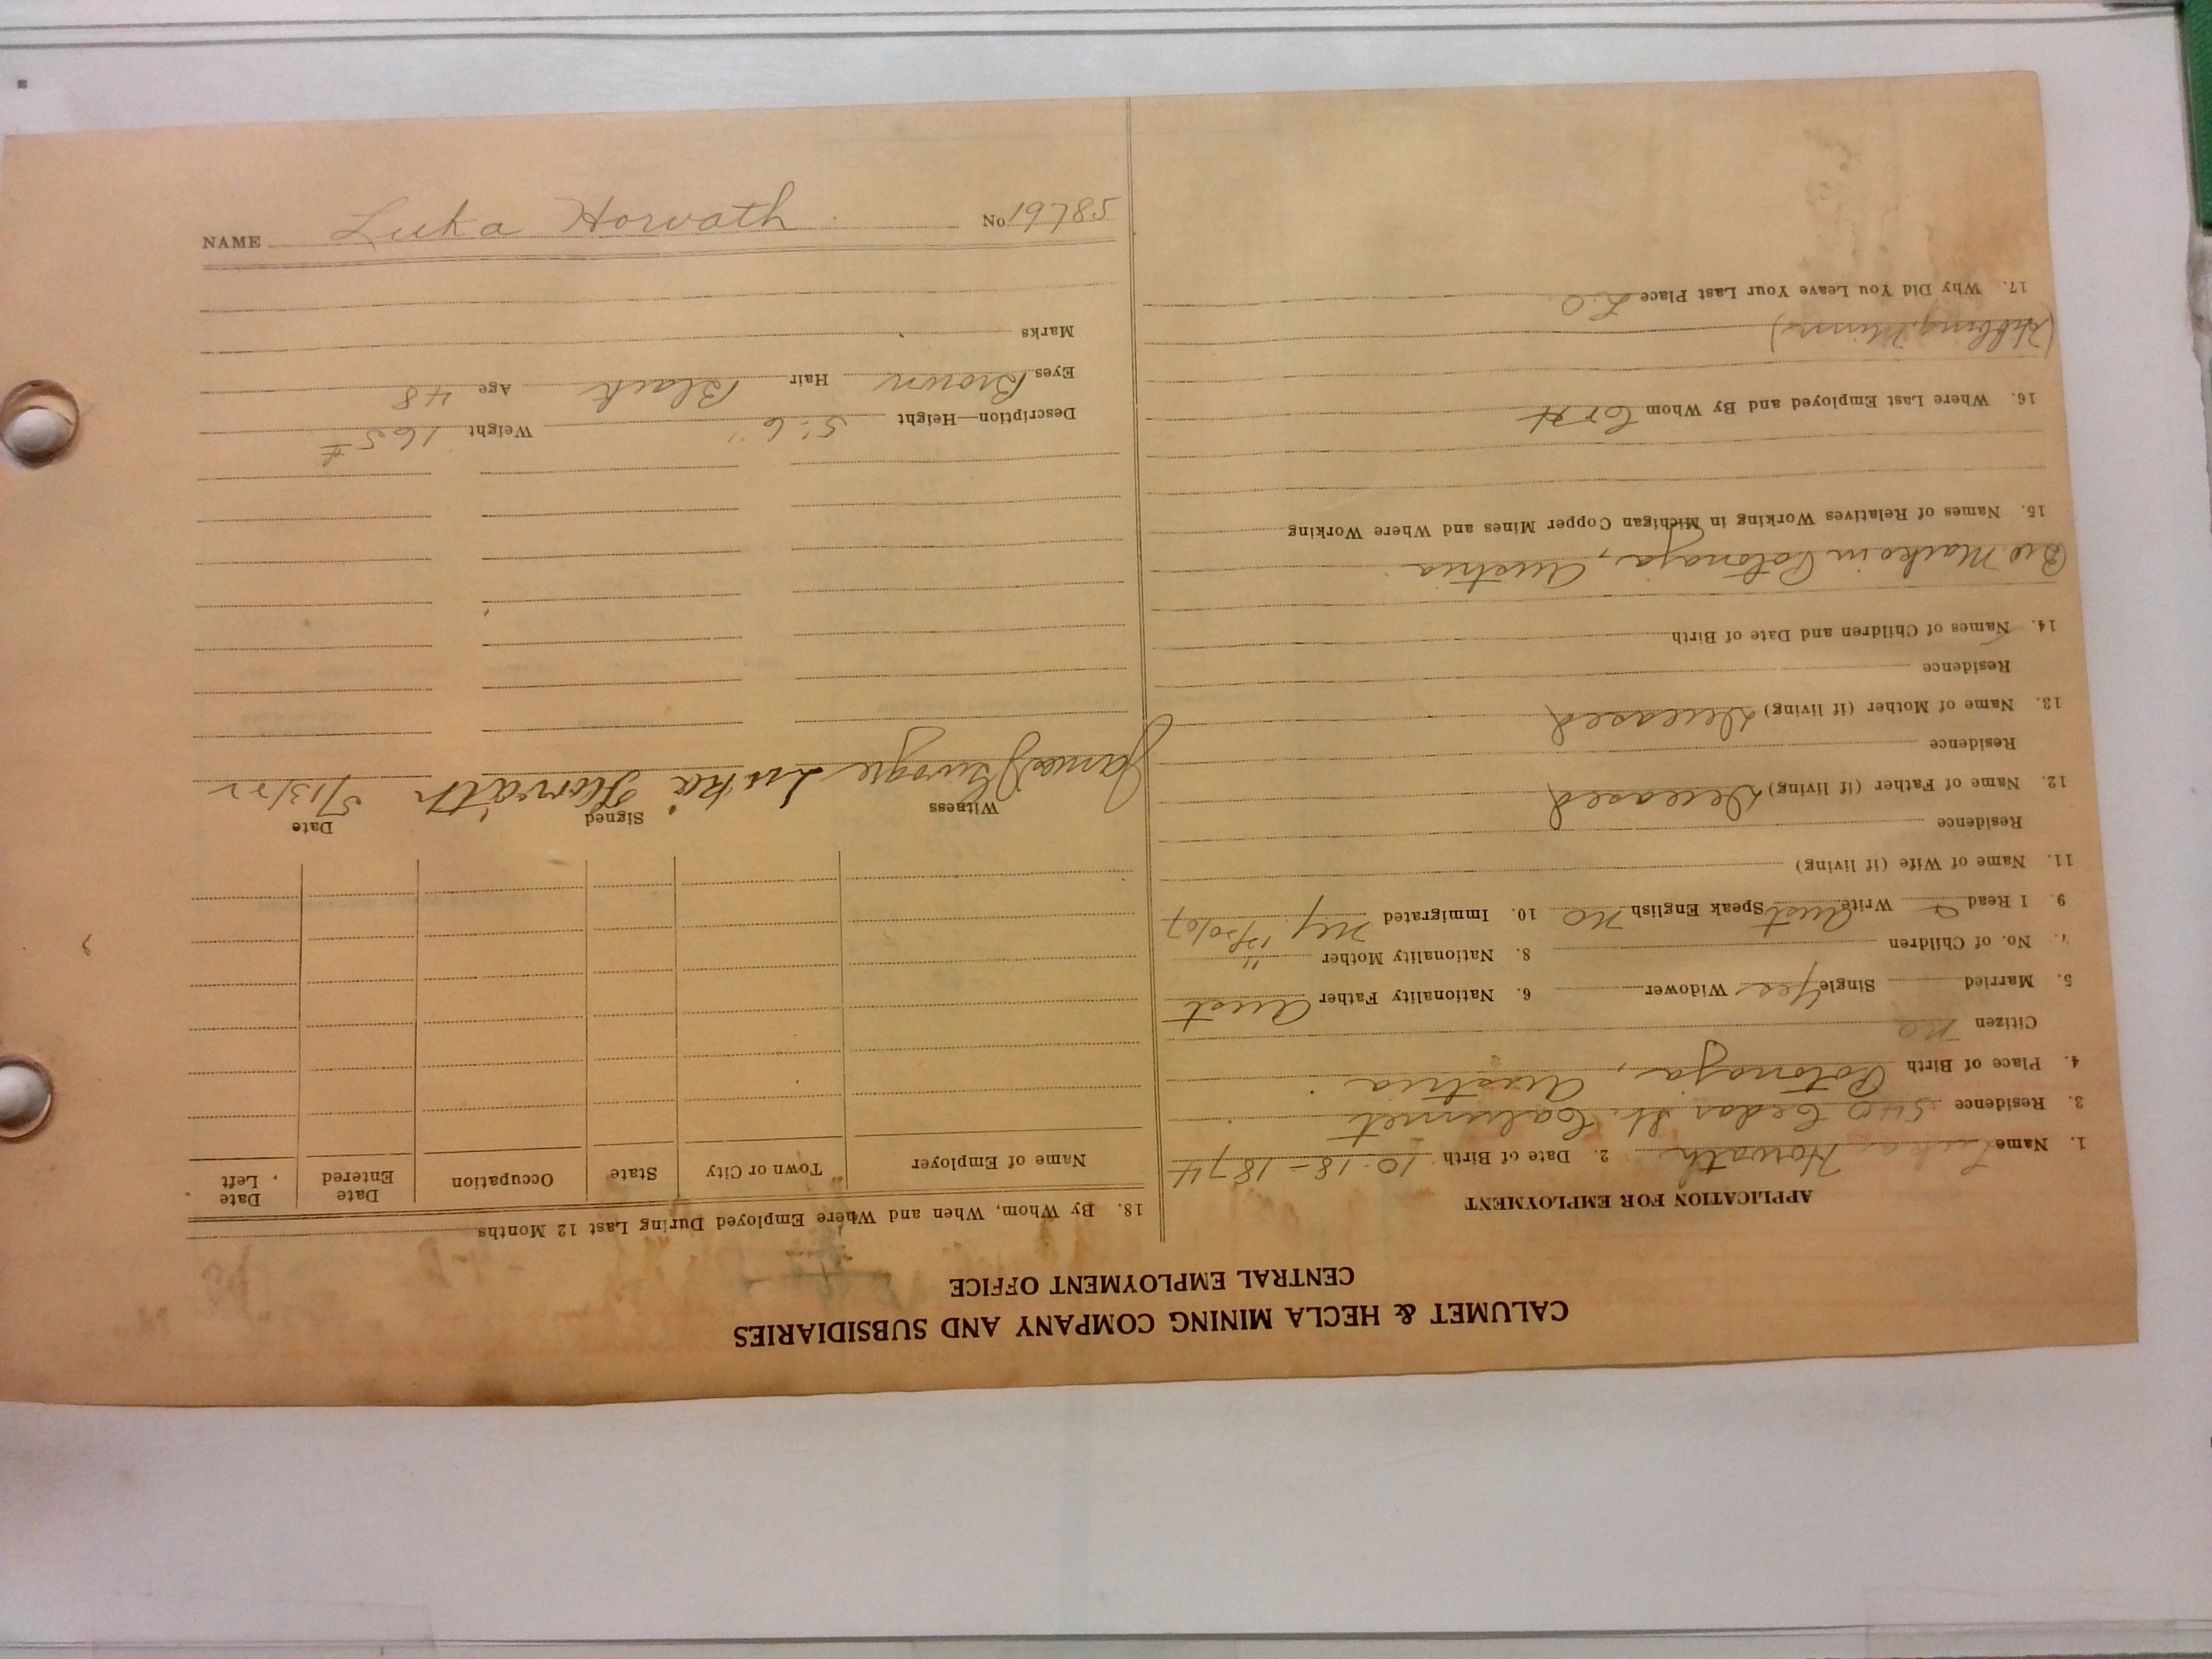 CALUMET & HECLA MINING COMPANY AND SUBSIDIARIES
CENTRAL EMPLOYMENT OFFICE
APPLICATION FOR EMPLOYMENT
1. Name Luka Horvath 2. Date of Birth 10-18-1874
3. Residence 540 Cedar St. Calumet
4. Place of Birth Potonaja, Austria
Citizen no
5. Married Single Yes Widower 6. Nationality Father Aust
7. No. of Children 8. Nationality Mother "
9. I Read & Write Aust Speak English no 10. Immigrated N.Y. 12/20/07
11. Name of Wife (if living)
Residence
12. Name of Father (if living) Deceased
Residence
13. Name of Mother (if living) Deceased
Residence
14. Names of Children and Date of Birth
Bro Marko in Potonaja, Austria
15. Names of Relatives Working in Michigan Copper Mines and Where Working
16. Where Last Employed and By Whom C & H
(Hibbing, Minn)
17. Why Did You Leave Your Last Place L.O.
18. By Whom, When and Where Employed During Last 12 Months
Name of Employer Town or City State Occupation Date Entered Date Left
Witness Signed Date
James Luka Horvath 5/13/22
Description—Height 5' 6" Weight 165#
Eyes Brown Hair Black Age 48
Marks
NAME Luka Horvath No. 19785